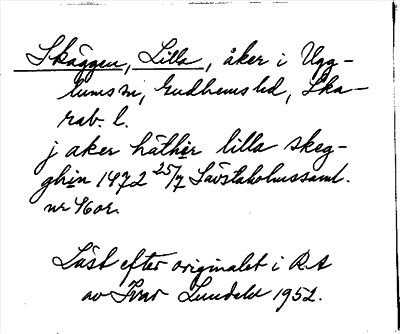 Skäggen, Lilla, åker i Ugg-
lums sn, Gudhems hd, Ska-
rab. l.
j aker häthir lilla skeg-
ghin 1472 25/7 Sävstaholmssaml.
nr 46 or.
Läst efter originalet i RA
av Ivar Lundahl 1952.